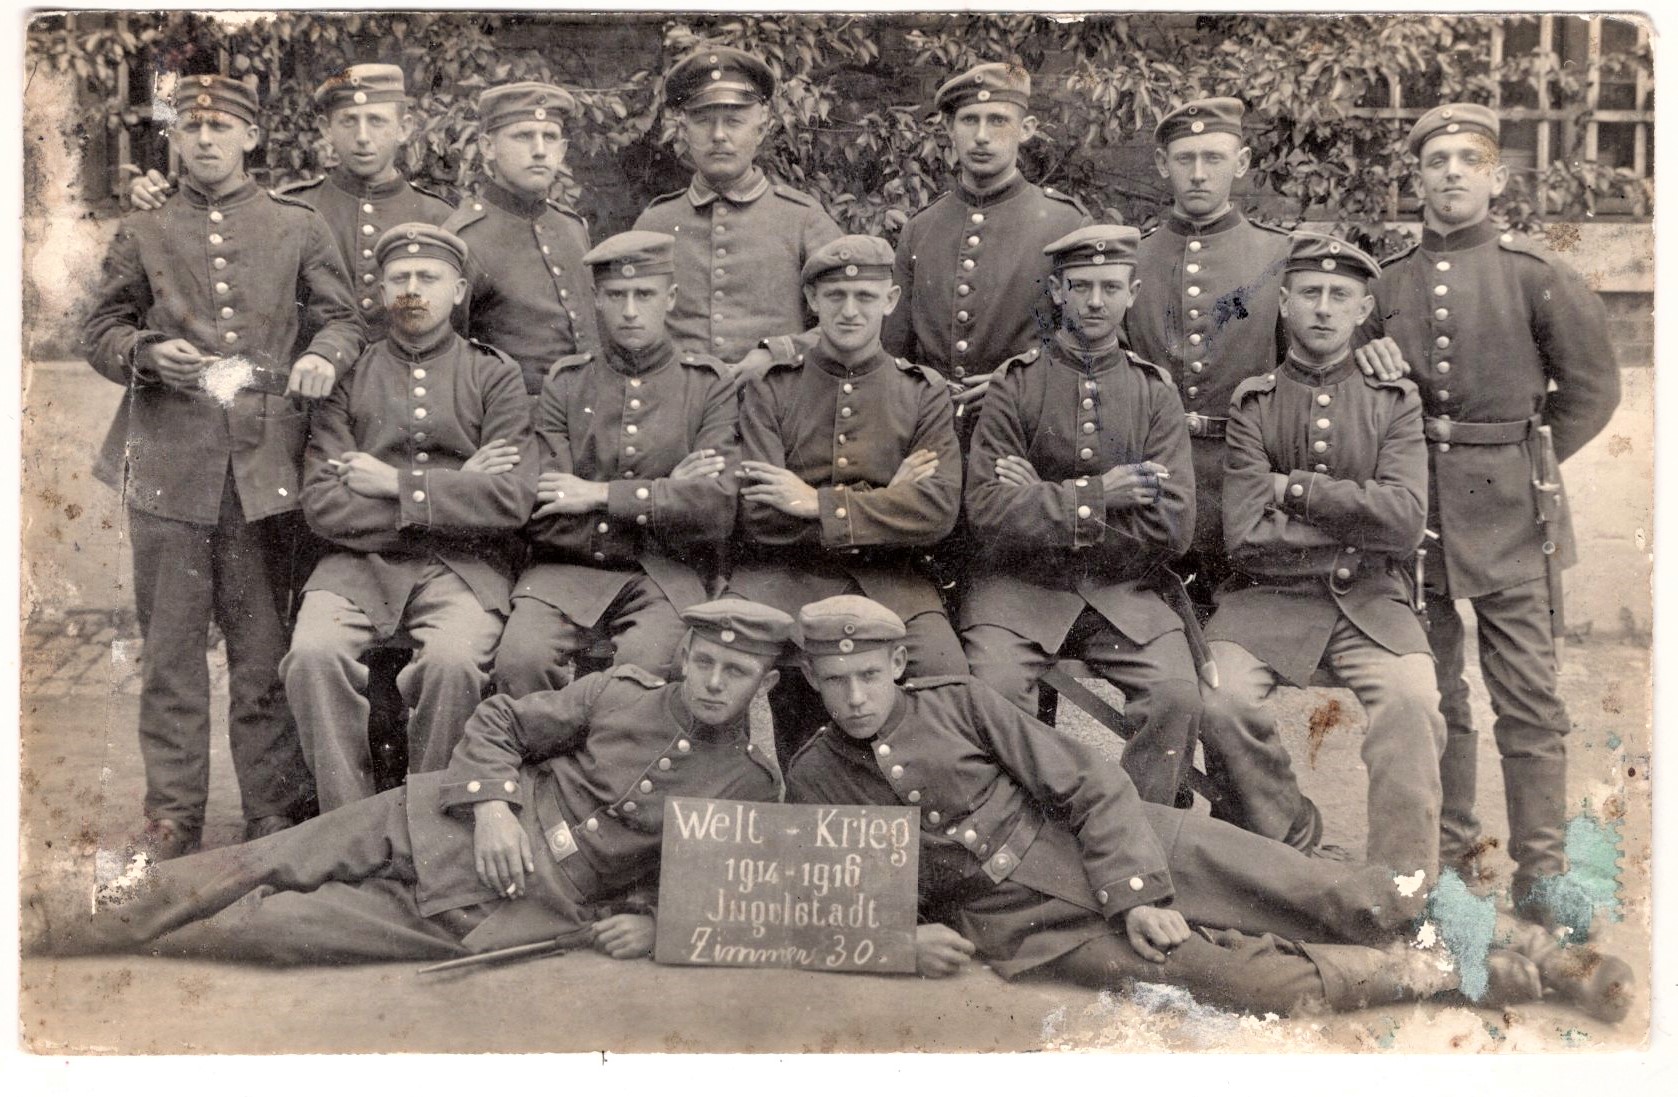 Welt - Krieg
1914-1916
Ingolstadt
Zimmer 30.